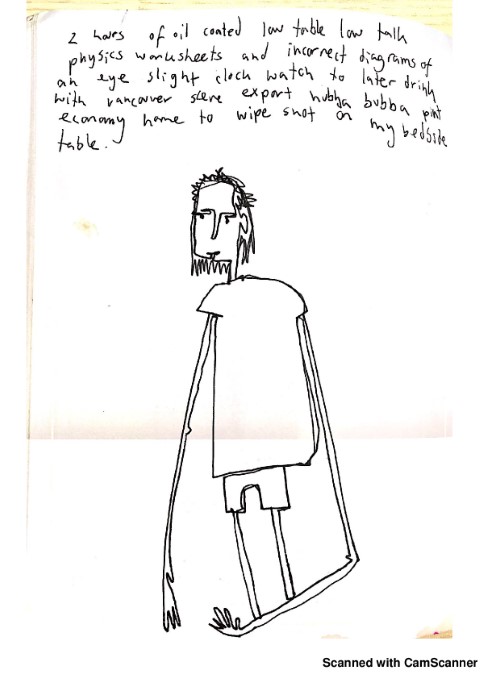 2 hours of oil coated low table low talk
physics worksheets and incorrect diagrams of
an eye slight clock watch to later drink
with vancouver steve export hubba bubba pint
economy home to wipe snot on my bedside
table.
Scanned with CamScanner